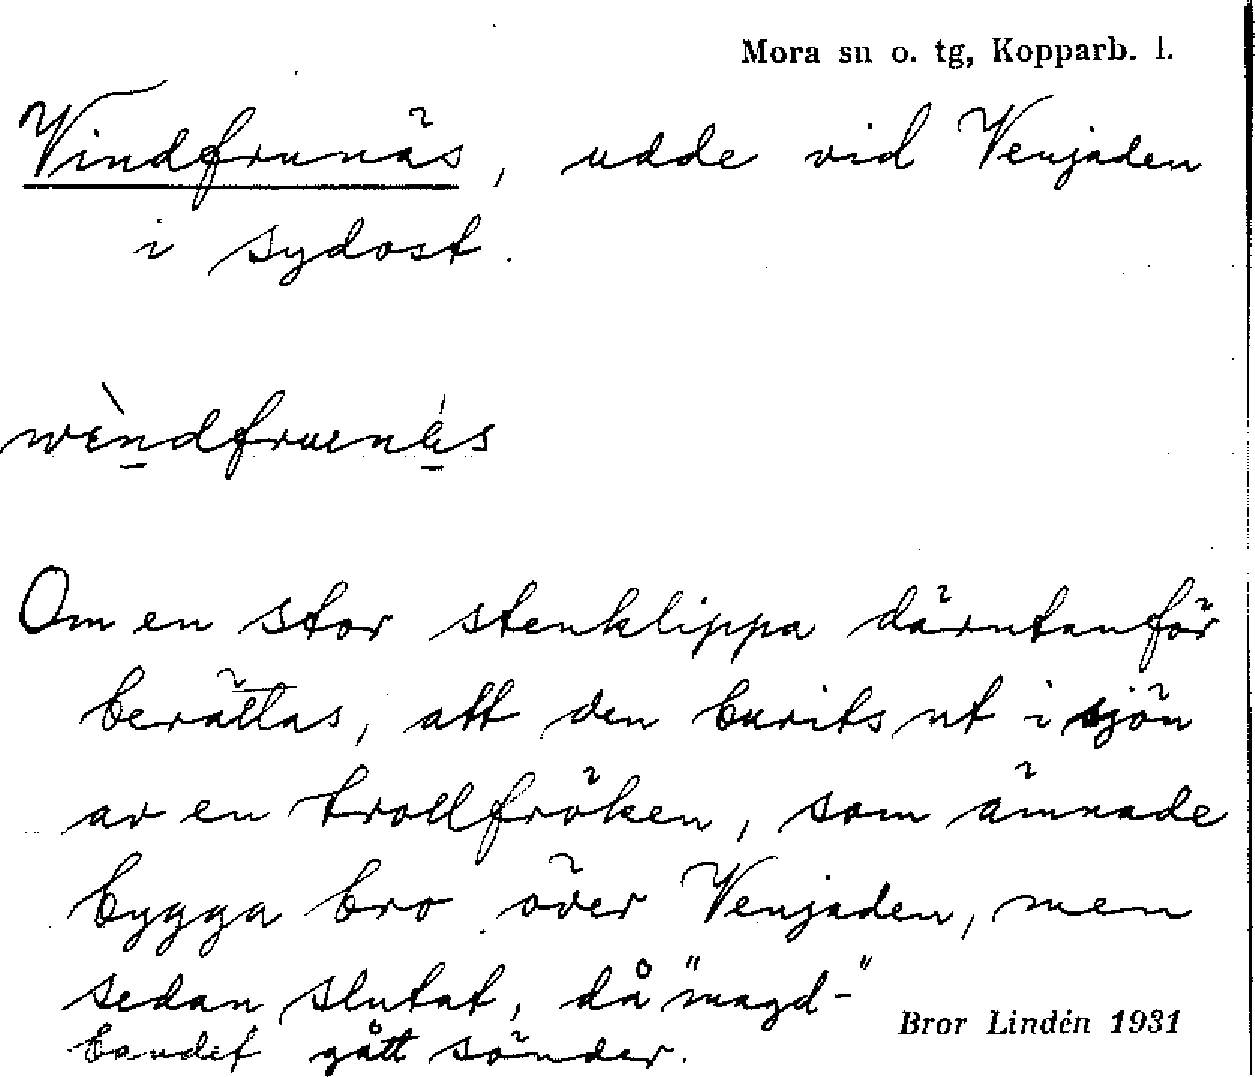 Mora sn o. tg, Kopparb. l.
Vindfrunäs, udde vid Venjaden
i sydost.
wèndfruenä́s
Om en stor stenklippa därutanför
berättas, att den burits ut i sjön
av en trollfröken, som ämnade
bygga bro över Venjaden, men
sedan slutat, då "magd-"
bandet gått sönder.
Bror Lindén 1931